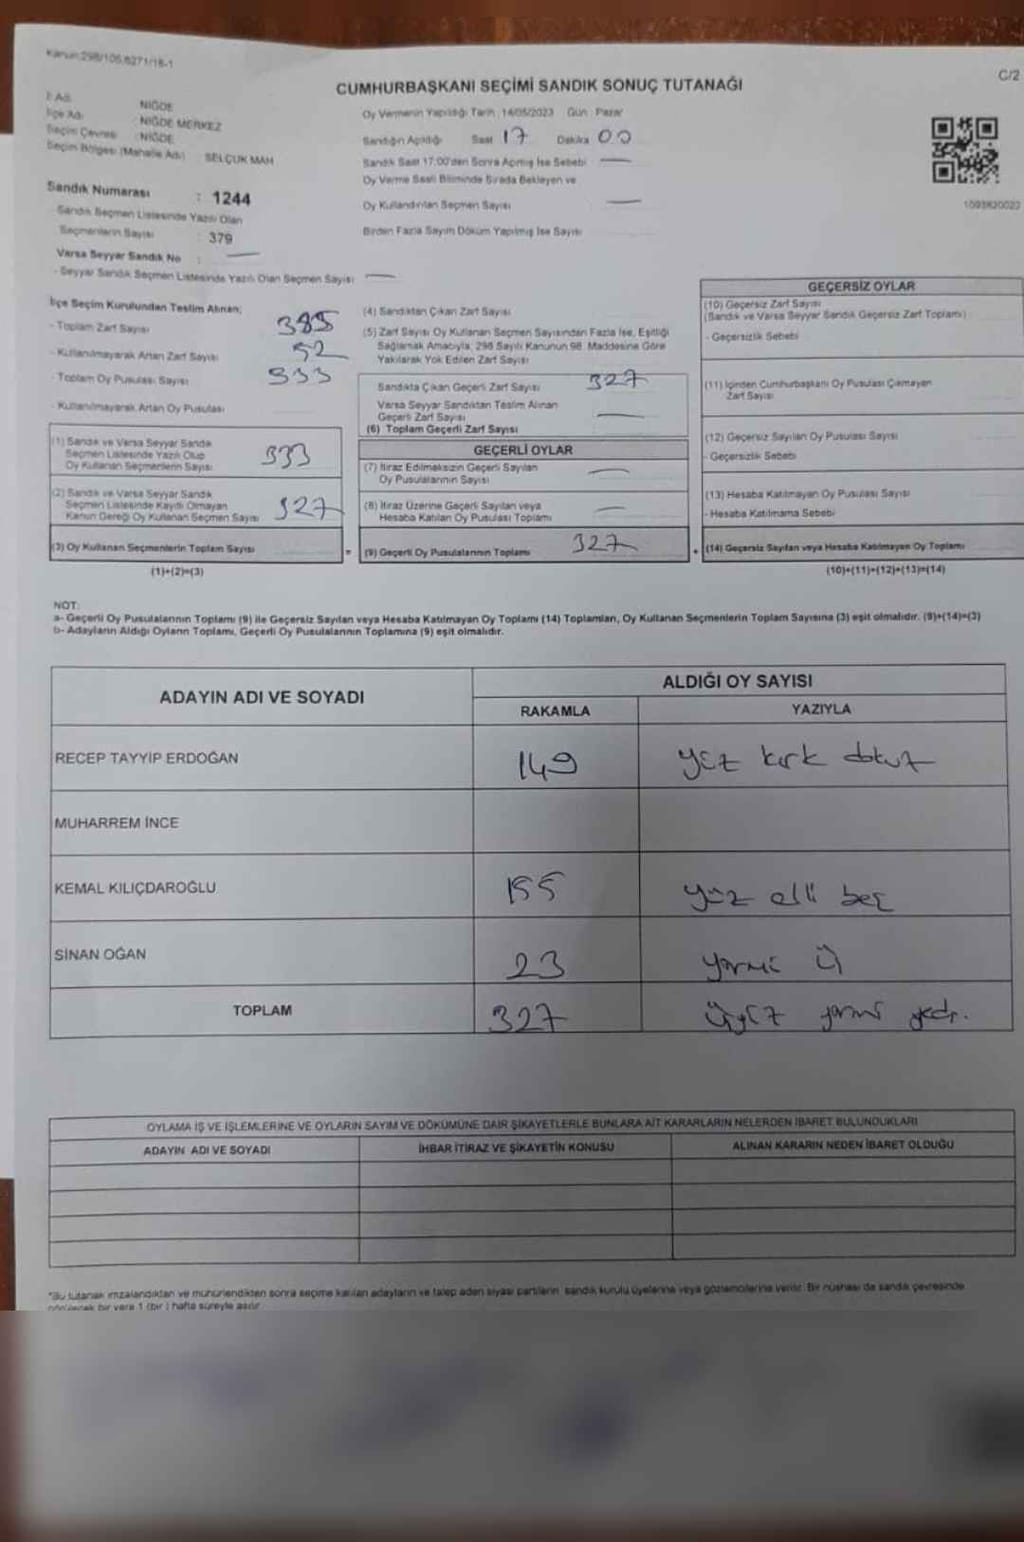 Kanun:298/105,6271/18-1
C/2
CUMHURBAŞKANI SEÇİMİ SANDIK SONUÇ TUTANAĞI
İl Adı : NİĞDE
İlçe Adı : NİĞDE MERKEZ
Seçim Çevresi : NİĞDE
Seçim Bölgesi (Mahalle Adı) : SELÇUK MAH
Sandık Numarası : 1244
Sandık Seçmen Listesinde Yazılı Olan
Seçmenlerin Sayısı : 379
Varsa Seyyar Sandık No : —
- Seyyar Sandık Seçmen Listesinde Yazılı Olan Seçmen Sayısı —
Oy Vermenin Yapıldığı Tarih : 14/05/2023 Gün : Pazar
Sandığın Açıldığı Saat 17 Dakika 00
Sandık Saat 17:00'den Sonra Açılmış İse Sebebi —
Oy Verme Saati Bitiminde Sırada Bekleyen ve
Oy Kullandırılan Seçmen Sayısı —
Birden Fazla Sayım Döküm Yapılmış İse Sayısı
İlçe Seçim Kurulundan Teslim Alınan;
- Toplam Zarf Sayısı 385
- Kullanılmayarak Artan Zarf Sayısı 52
- Toplam Oy Pusulası Sayısı 333
- Kullanılmayarak Artan Oy Pusulası
(1) Sandık ve Varsa Seyyar Sandık
Seçmen Listesinde Yazılı Olup
Oy Kullanan Seçmenlerin Sayısı 333
(2) Sandık ve Varsa Seyyar Sandık
Seçmen Listesinde Kayıtlı Olmayan
Kanun Gereği Oy Kullanan Seçmen Sayısı 327
(3) Oy Kullanan Seçmenlerin Toplam Sayısı
(1)+(2)=(3)
(4) Sandıktan Çıkan Zarf Sayısı
(5) Zarf Sayısı Oy Kullanan Seçmen Sayısından Fazla İse, Eşitliği
Sağlamak Amacıyla, 298 Sayılı Kanunun 98. Maddesine Göre
Yakılarak Yok Edilen Zarf Sayısı
Sandıkta Çıkan Geçerli Zarf Sayısı 327
Varsa Seyyar Sandıktan Teslim Alınan
Geçerli Zarf Sayısı —
(6) Toplam Geçerli Zarf Sayısı
GEÇERLİ OYLAR
(7) İtiraz Edilmeksizin Geçerli Sayılan
Oy Pusulalarının Sayısı —
(8) İtiraz Üzerine Geçerli Sayılan veya
Hesaba Katılan Oy Pusulası Toplamı —
= (9) Geçerli Oy Pusulalarının Toplamı 327
1093620022
GEÇERSİZ OYLAR
(10) Geçersiz Zarf Sayısı
(Sandık ve Varsa Seyyar Sandık Geçersiz Zarf Toplamı)
- Geçersizlik Sebebi
(11) İçinden Cumhurbaşkanı Oy Pusulası Çıkmayan
Zarf Sayısı
(12) Geçersiz Sayılan Oy Pusulası Sayısı
- Geçersizlik Sebebi
(13) Hesaba Katılmayan Oy Pusulası Sayısı
- Hesaba Katılmama Sebebi
+ (14) Geçersiz Sayılan veya Hesaba Katılmayan Oy Toplamı
(10)+(11)+(12)+(13)=(14)
NOT:
a- Geçerli Oy Pusulalarının Toplamı (9) ile Geçersiz Sayılan veya Hesaba Katılmayan Oy Toplamı (14) Toplamları, Oy Kullanan Seçmenlerin Toplam Sayısına (3) eşit olmalıdır. (9)+(14)=(3)
b- Adayların Aldığı Oyların Toplamı, Geçerli Oy Pusulalarının Toplamına (9) eşit olmalıdır.
ADAYIN ADI VE SOYADI
ALDIĞI OY SAYISI
RAKAMLA YAZIYLA
RECEP TAYYİP ERDOĞAN 149 yüz kırk dokuz
MUHARREM İNCE
KEMAL KILIÇDAROĞLU 155 yüz elli beş
SİNAN OĞAN 23 yirmi üç
TOPLAM 327 üçyüz yirmi yedi.
OYLAMA İŞ VE İŞLEMLERİNE VE OYLARIN SAYIM VE DÖKÜMÜNE DAİR ŞİKAYETLERLE BUNLARA AİT KARARLARIN NELERDEN İBARET BULUNDUKLARI
ADAYIN ADI VE SOYADI İHBAR İTİRAZ VE ŞİKAYETİN KONUSU ALINAN KARARIN NEDEN İBARET OLDUĞU
*Bu tutanak imzalandıktan ve mühürlendikten sonra seçime katılan adayların ve talep eden siyasi partilerin sandık kurulu üyelerine veya gözlemcilerine verilir. Bir nüshası da sandık çevresinde
görülecek bir yere 1 (bir) hafta süreyle asılır.